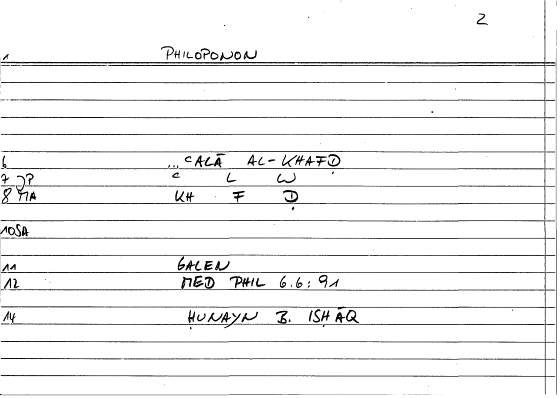 2
1 PHILOPONON
6 ... ᶜALĀ AL-KHAFḌ
7 JP ᶜ L W
8 MA KH F Ḍ
10SA
11 GALEN
12 MED PHIL 6.6:91
14 ḤUNAYN B. ISḤĀQ